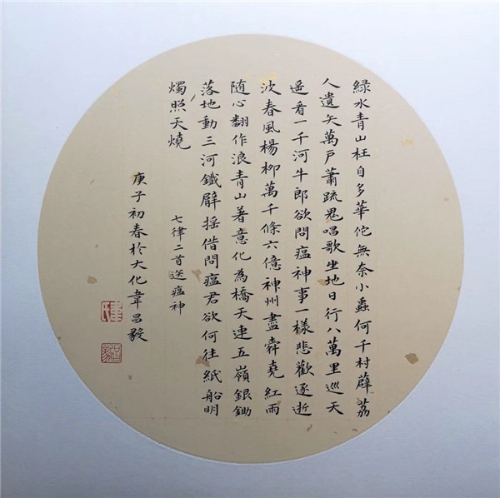 綠水青山枉自多華佗無奈小蟲何千村薜荔
人遺矢萬戶蕭疏鬼唱歌坐地日行八萬里巡天
遙看一千河牛郎欲問瘟神事一樣悲歡逐逝
波春風楊柳萬千條六億神州盡舜堯紅雨
随心翻作浪青山著意化為橋天連五嶺銀鋤
落地動三河鐵臂搖借問瘟君欲何往紙船明
燭照天燒
七律二首送瘟神
庚子初春於大化韋昌毅